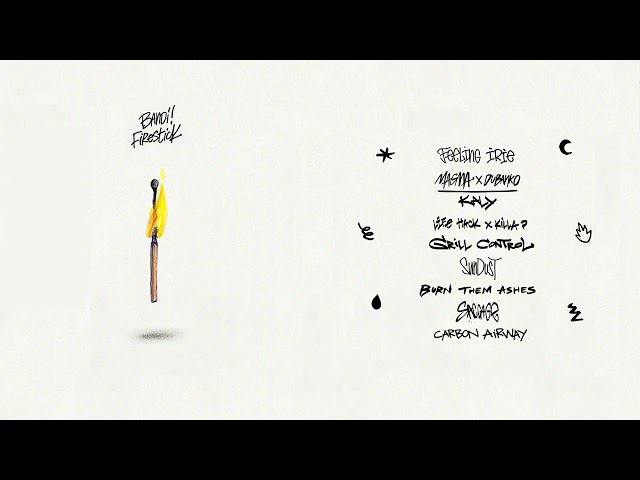 Bandi!!
Firestick
Feeling Irie
Magma x Dubanko
Kaly
Life Hack x Killa P
Grill Control
Sundust
Burn Them Ashes
Carbon Airway